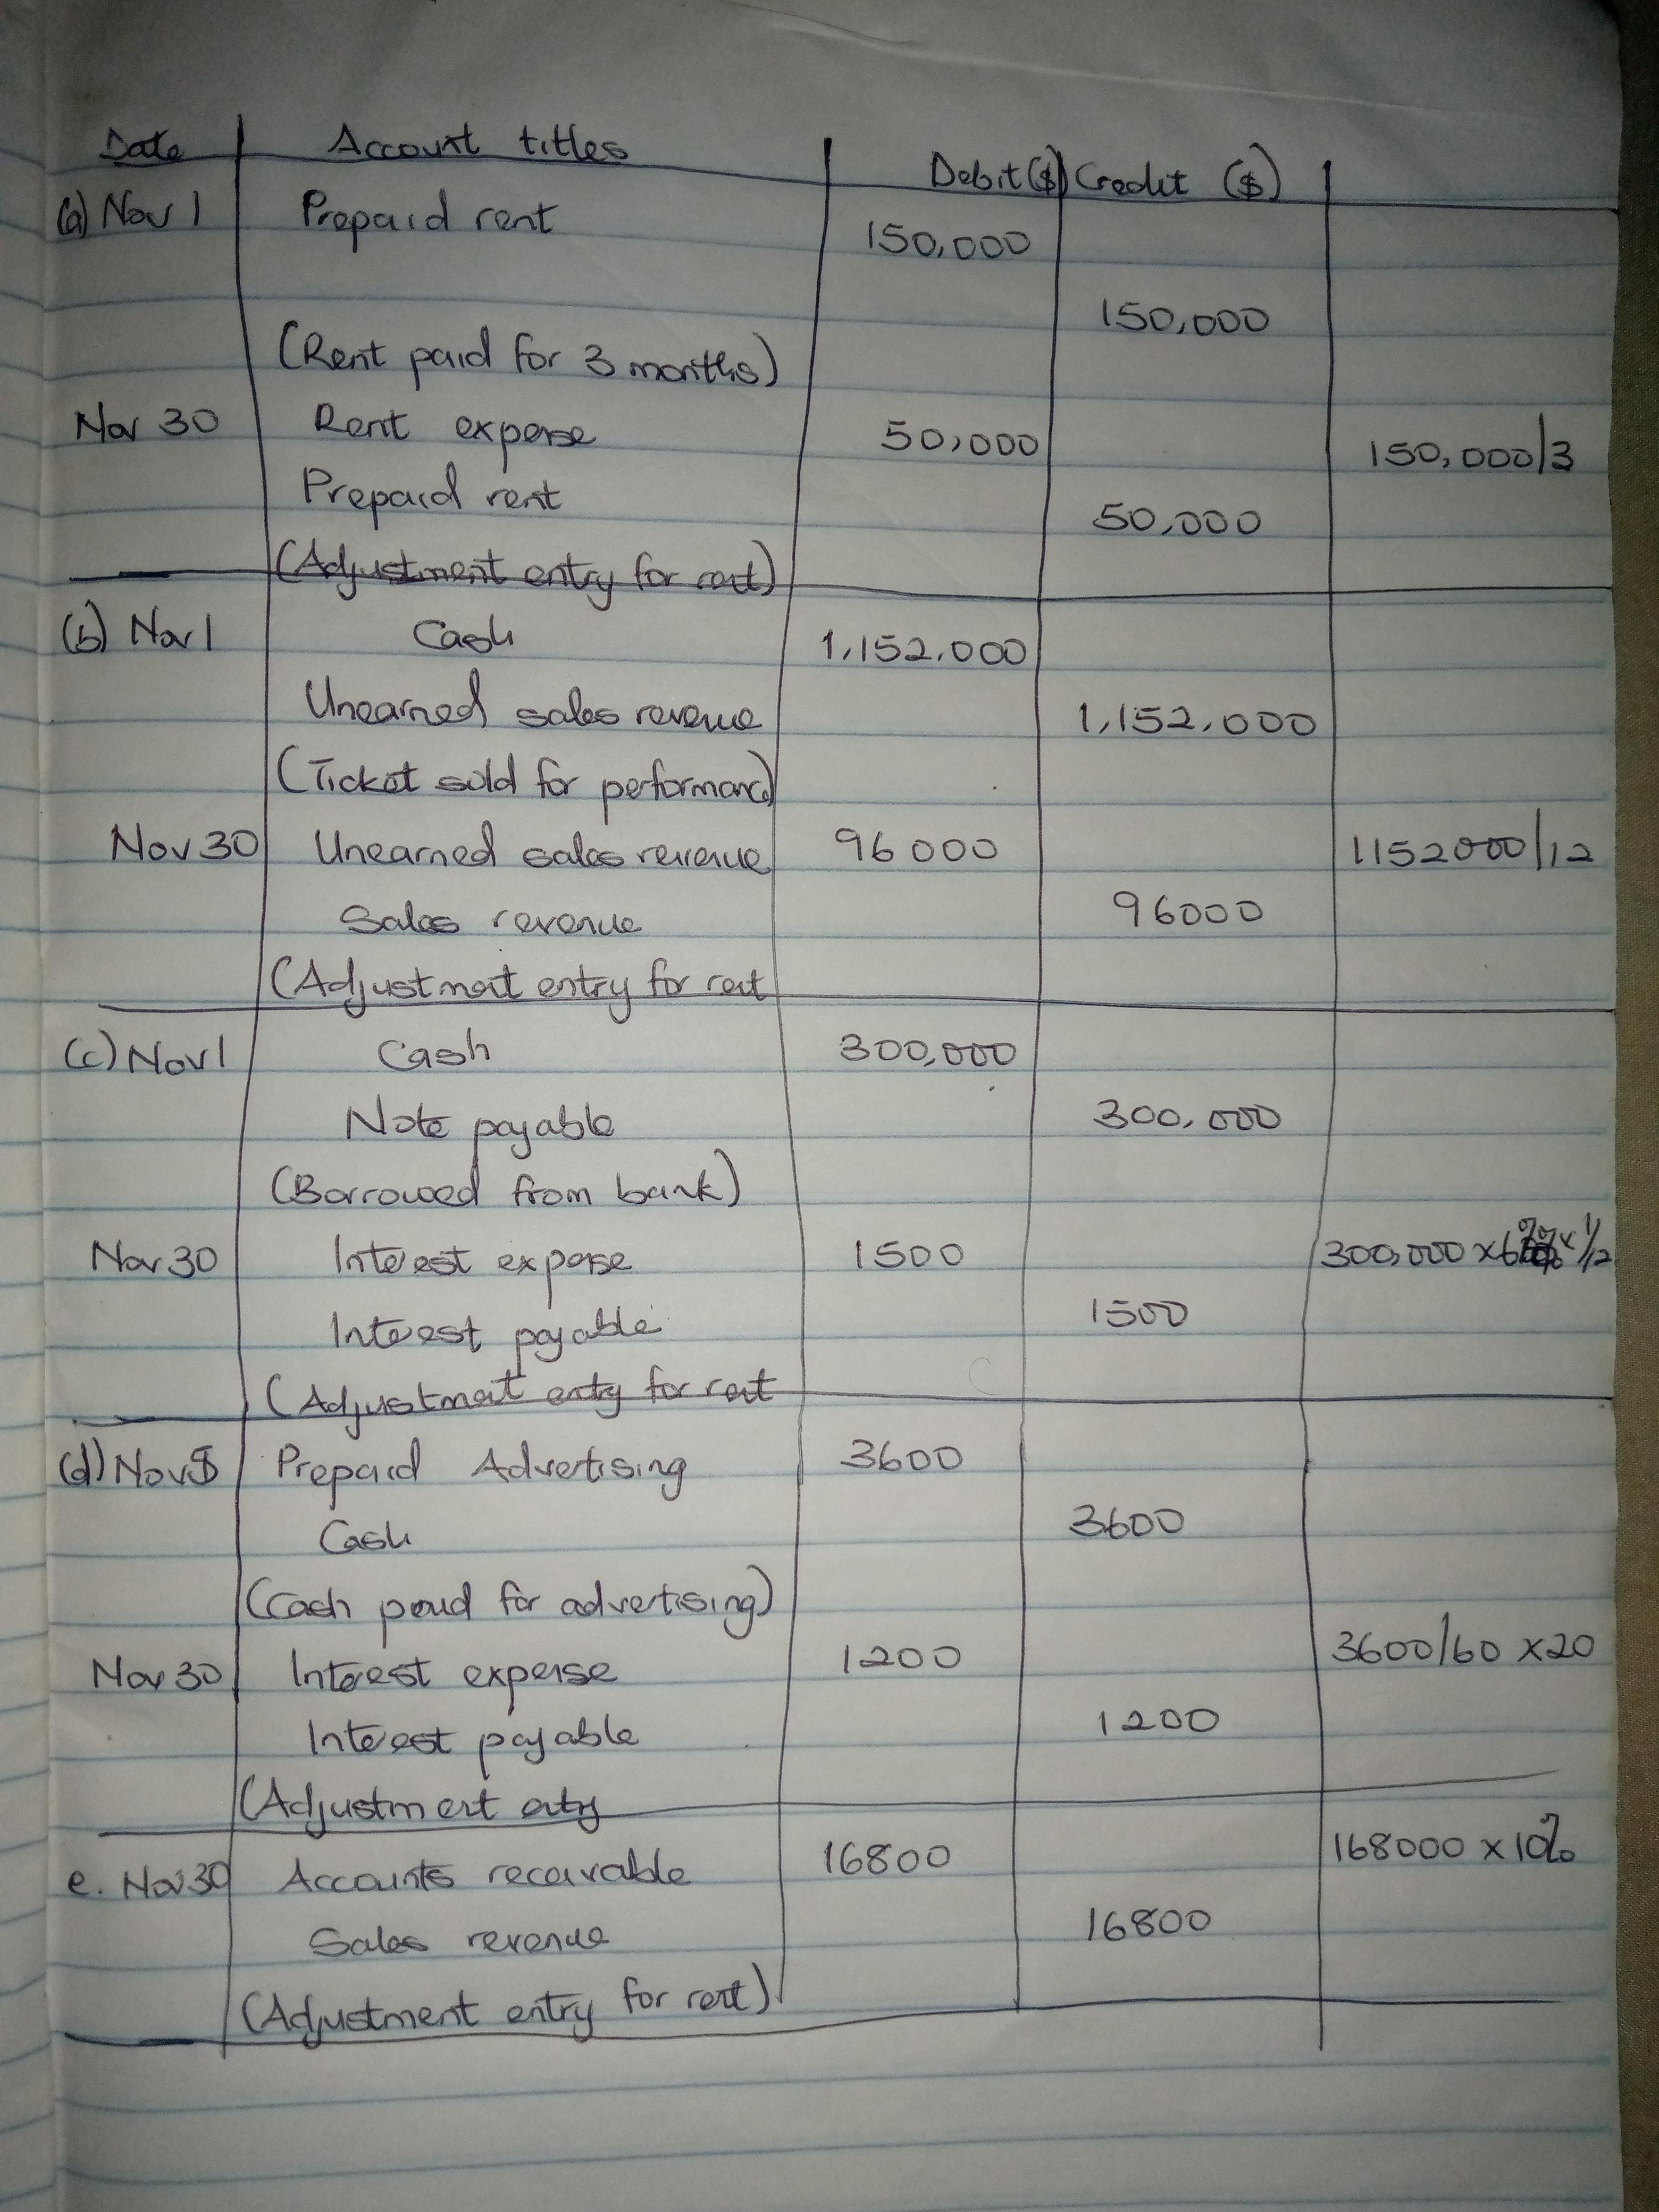 Date Account titles Debit($) Credit ($)
(a) Nov 1 Prepaid rent 150,000
150,000
(Rent paid for 3 months)
Nov 30 Rent expense 50,000 150,000/3
Prepaid rent 50,000
(Adjustment entry for rent)
(b) Nov 1 Cash 1,152,000
Unearned sales revenue 1,152,000
(Ticket sold for performance)
Nov 30 Unearned sales revenue 96000 1152000/12
Sales revenue 96000
(Adjustment entry for rent
(c) Nov 1 Cash 300,000
Note payable 300,000
(Borrowed from bank)
Nov 30 Interest expense 1500 300,000 x 6% x 1/12
Interest payable 1500
(Adjustment entry for rent
(d) Nov Prepaid Advertising 3600
Cash 3600
(Cash paid for advertising)
Nov 30 Interest expense 1200 3600/60 x 20
Interest payable 1200
(Adjustment entry
e. Nov 30 Accounts receivable 16800 168000 x 10%
Sales revenue 16800
(Adjustment entry for rent)